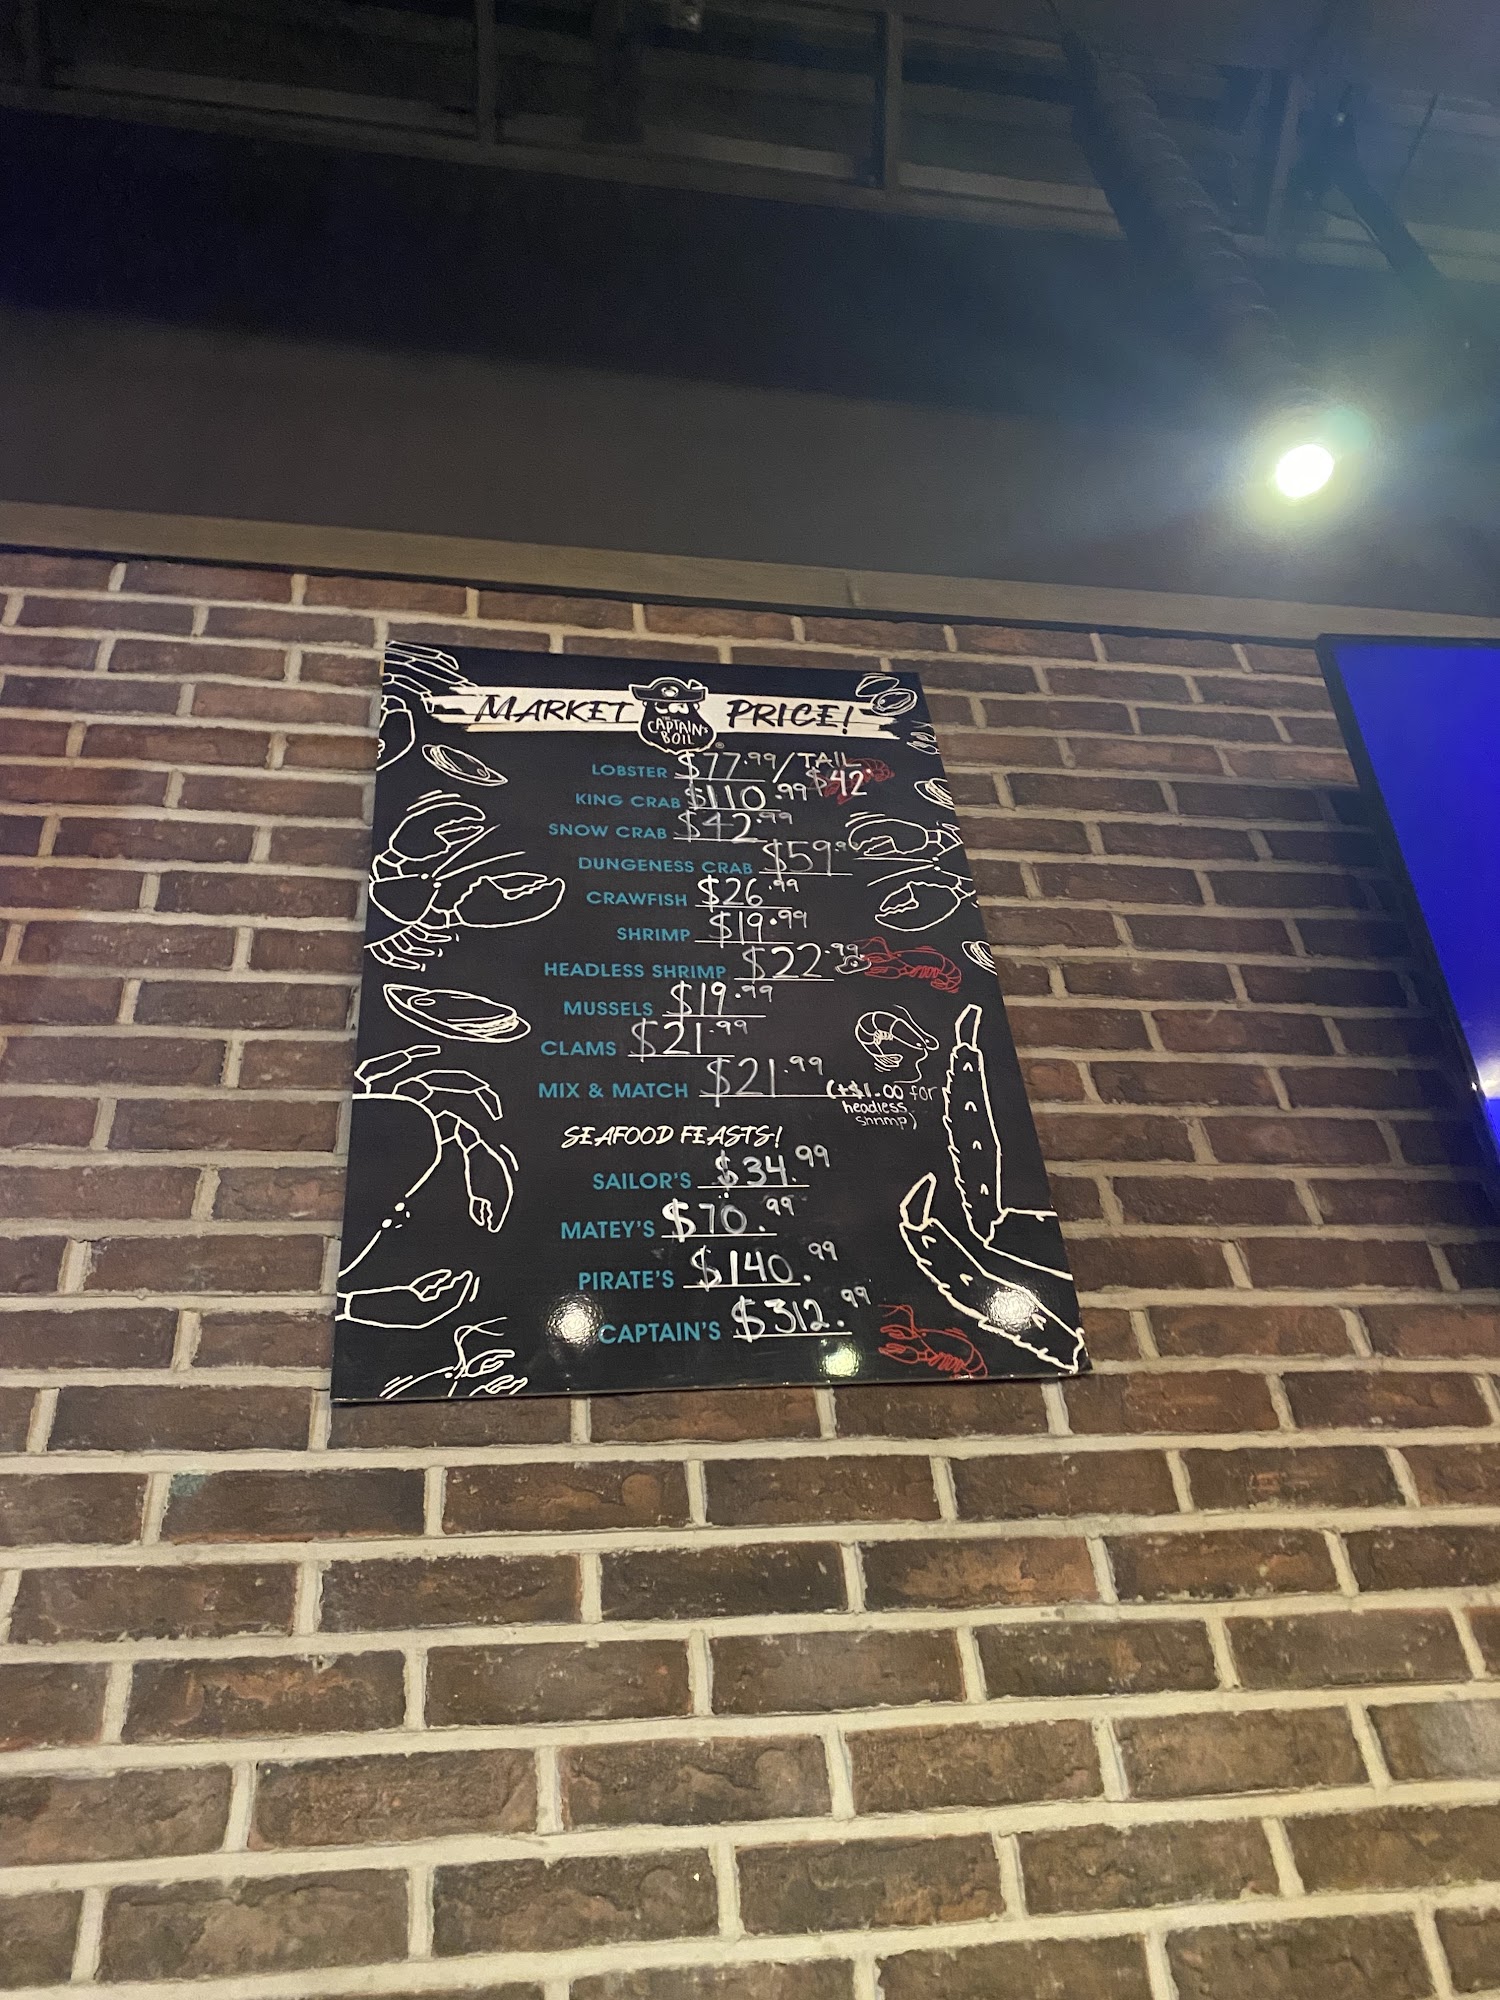 MARKET PRICE!
THE CAPTAIN'S BOIL
LOBSTER $77.99/TAIL $42.
KING CRAB $110.99
SNOW CRAB $42.99
DUNGENESS CRAB $59.99
CRAWFISH $26.99
SHRIMP $19.99
HEADLESS SHRIMP $22.99
MUSSELS $19.99
CLAMS $21.99
MIX & MATCH $21.99 (+$1.00 for
headless
shrimp)
SEAFOOD FEASTS!
SAILOR'S $34.99
MATEY'S $70.99
PIRATE'S $140.99
CAPTAIN'S $312.99